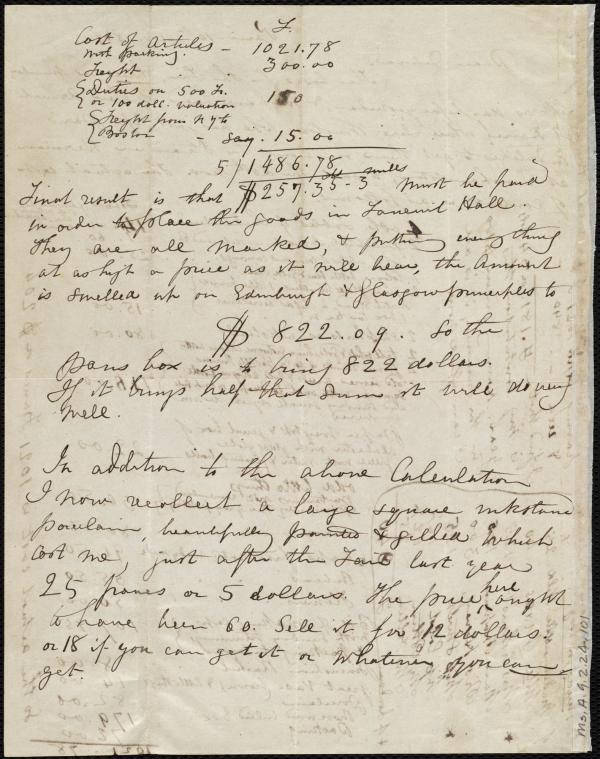 F.
Cost of Articles - 1021.78
with packing.
Freight . . 300.00
Duties on 500 Fr. 150
or 100 doll. valuation
Freight from N Y to
Boston - say . 15.00
5/1486.78
Final result is that $257.35-3 mills must be paid
in order to place the goods in Faneuil Hall.
They are all marked, & putting everything
at as high a price as it will bear, the amount
is swelled up on Edinburgh & Glasgow principles to
$822.09. So the
paris box is to bring 822 dollars.
If it brings half that sum it will do very
well.
In addition to the above Calculation
I now recollect a large square inkstand
porcelain, beautifully painted & gilded which
cost me, just after the Fair last year
25 francs or 5 dollars. The price here ought
to have been 60. Sell it for 12 dollars.
or 18 if you can get it or whatever you can
get.
Ms.A.9.2.24.101